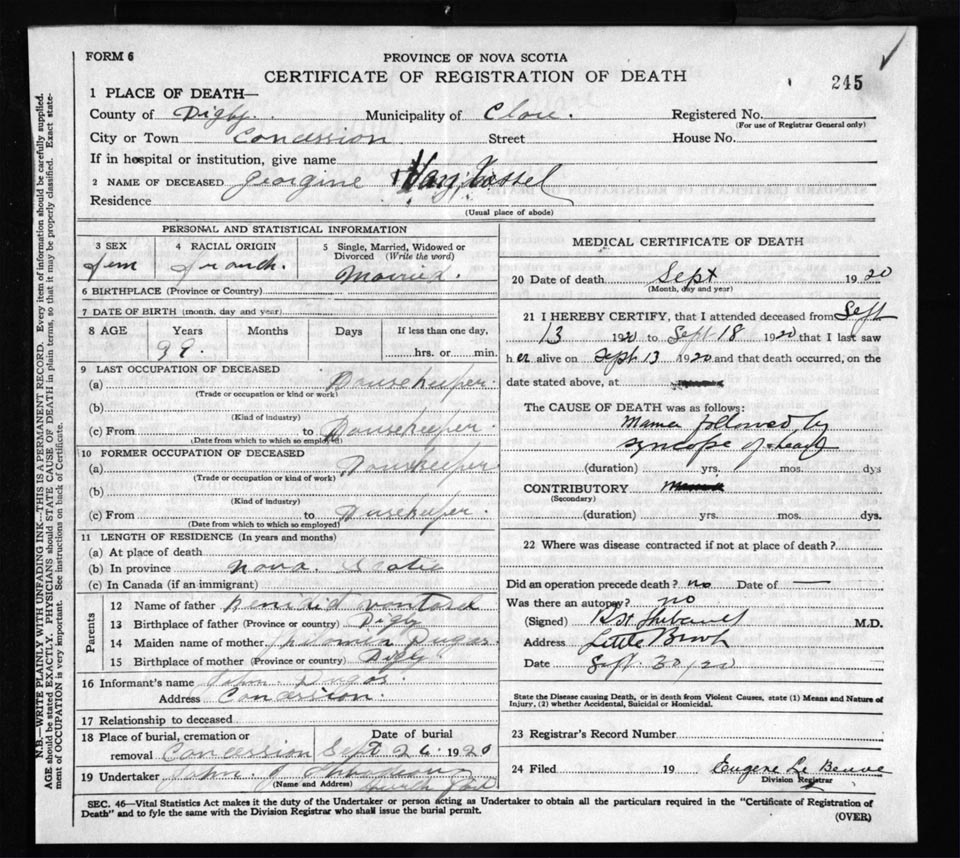 FORM 6
PROVINCE OF NOVA SCOTIA
CERTIFICATE OF REGISTRATION OF DEATH
245
1 PLACE OF DEATH—
County of Digby. Municipality of Clare. Registered No.
(For use of Registrar General only)
City or Town Concession Street House No.
If in hospital or institution, give name
2 NAME OF DECEASED Georgine
Residence
(Usual place of abode)
PERSONAL AND STATISTICAL INFORMATION
3 SEX 4 RACIAL ORIGIN 5 Single, Married, Widowed or
Divorced (Write the word)
Fem French. Married.
6 BIRTHPLACE (Province or Country)
7 DATE OF BIRTH (month, day and year)
8 AGE Years Months Days If less than one day,
hrs. or min.
9 LAST OCCUPATION OF DECEASED
(a) Housekeeper.
(Trade or occupation or kind or work)
(b)
(Kind of industry)
(c) From to Housekeeper.
(Date from which to which so employed)
10 FORMER OCCUPATION OF DECEASED
(a) Housekeeper
(Trade or occupation or kind of work)
(b)
(Kind of industry)
(c) From to Housekeeper.
(Date from which to which so employed)
11 LENGTH OF RESIDENCE (In years and months)
(a) At place of death
(b) In province Nova Scotia
(c) In Canada (if an immigrant)
Parents
12 Name of father
13 Birthplace of father (Province or country) Digby
14 Maiden name of mother Dugas.
15 Birthplace of mother (Province or country) Digby
16 Informant's name John Dugas.
Address Concession.
17 Relationship to deceased
18 Place of burial, cremation or Date of burial
removal Concession Sept 26. 1920
19 Undertaker John
(Name and Address)
MEDICAL CERTIFICATE OF DEATH
20 Date of death Sept 1920
(Month, day and year)
21 I HEREBY CERTIFY, that I attended deceased from Sept
13 1920 to Sept 18 1920 that I last saw
her alive on Sept 13 1920 and that death occurred, on the
date stated above, at
The CAUSE OF DEATH was as follows:
followed by
syncope of heart
(duration) yrs. mos. dys
CONTRIBUTORY
(Secondary)
(duration) yrs. mos. dys.
22 Where was disease contracted if not at place of death?
Did an operation precede death? no Date of —
Was there an autopsy? no
(Signed) Thibault M.D.
Address Little Brook
Date Sept. 30/20
State the Disease causing Death, or in death from Violent Causes, state (1) Means and Nature of
Injury, (2) whether Accidental, Suicidal or Homicidal.
23 Registrar's Record Number
24 Filed 19 Eugene
Division Registrar
SEC. 46—Vital Statistics Act makes it the duty of the Undertaker or person acting as Undertaker to obtain all the particulars required in the "Certificate of Registration of
Death" and to fyle the same with the Division Registrar who shall issue the burial permit.
(OVER)
N.B.—WRITE PLAINLY WITH UNFADING INK—THIS IS A PERMANENT RECORD. Every item of information should be carefully supplied.
AGE should be stated EXACTLY. PHYSICIANS should STATE CAUSE OF DEATH in plain terms, so that it may be properly classified. Exact state-
ment of OCCUPATION is very important. See instructions on back of Certificate.